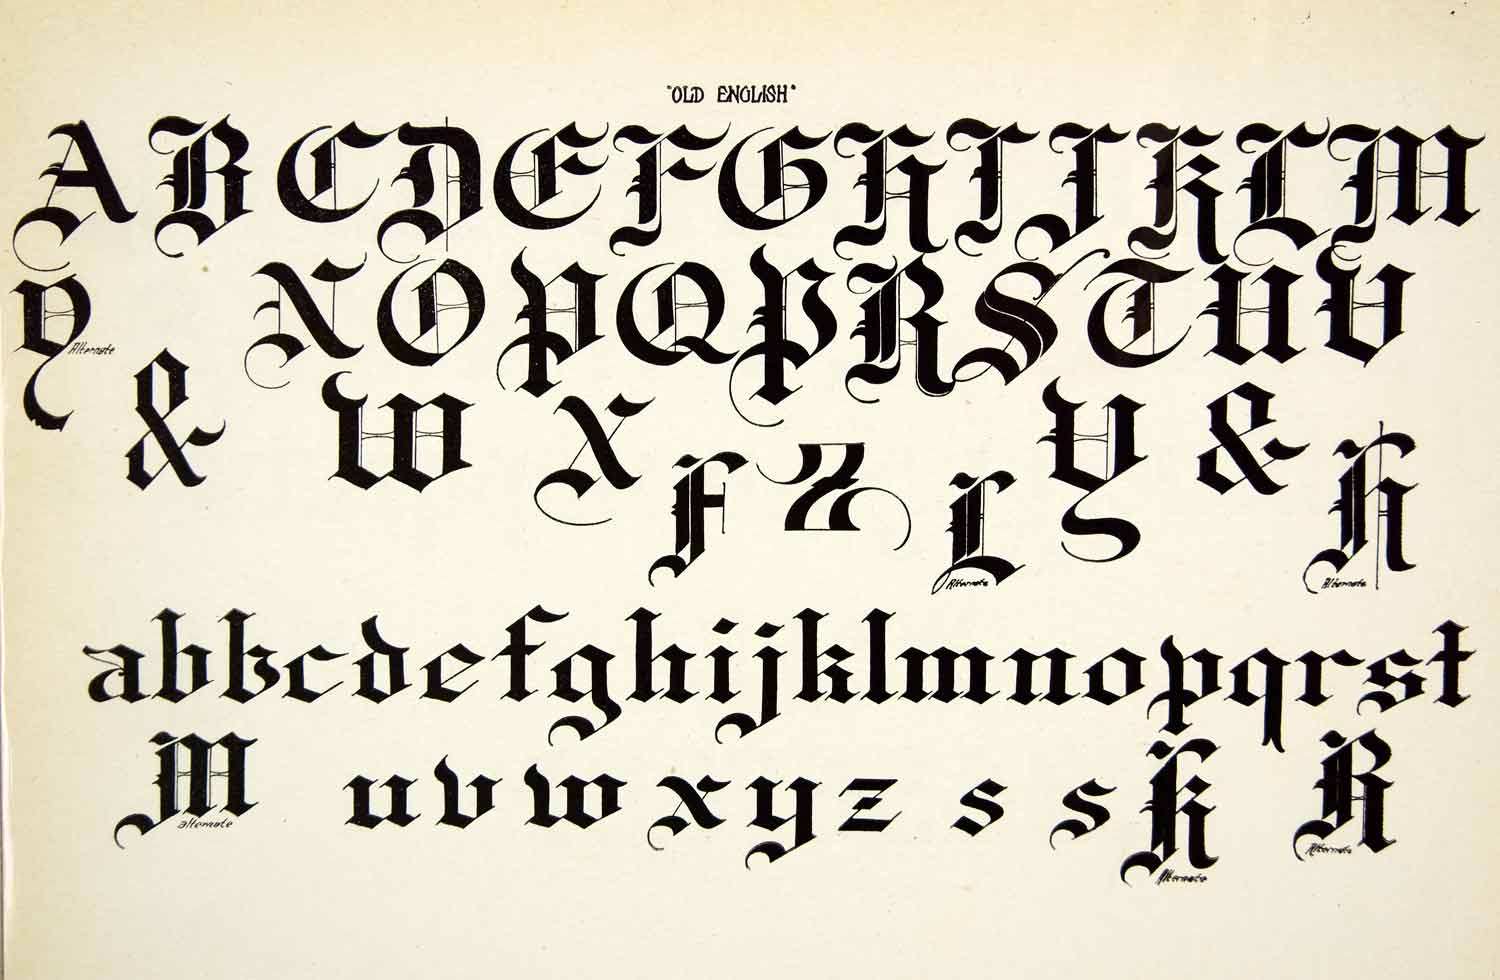 "OLD ENGLISH"
A B C D E F G H I J K L M
Y N O P Q P R S T U V
Alternate
& W X F Z L Y & H
Alternate Alternate
a b k c d e f g h i j k l m n o p q r s t
M u v w x y z s s K R
alternate Alternate Alternate